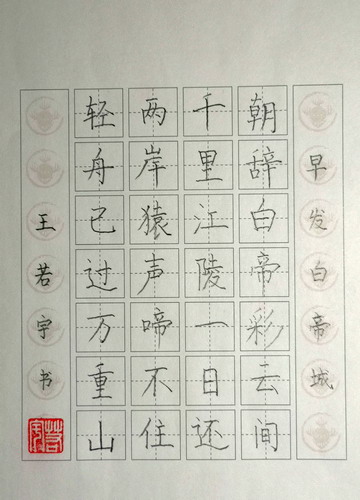 早发白帝城
朝辞白帝彩云间
千里江陵一日还
两岸猿声啼不住
轻舟已过万重山
王若宇书